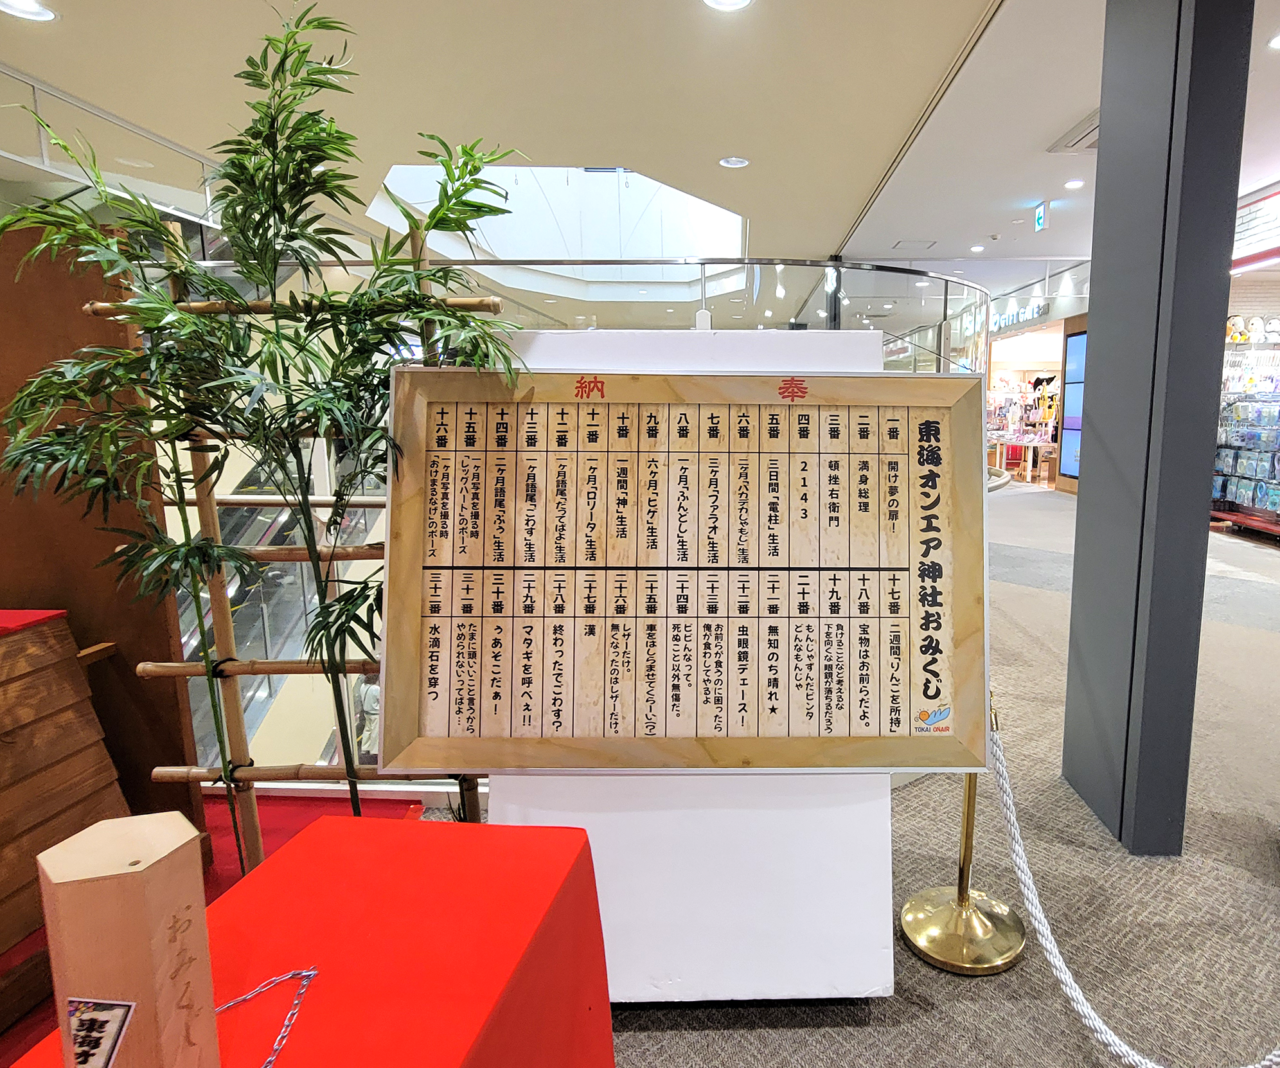 奉納
東海オンエア神社おみくじ
TOKAI ONAIR
一番
開け夢の扉！
二番
満身総理
三番
頓挫右衛門
四番
2143
五番
三日間「電柱」生活
六番
二ヶ月「バカデカじゃもじ」生活
七番
三ヶ月「ファラオ」生活
八番
一ヶ月「ふんどし」生活
九番
六ヶ月「ヒゲ」生活
十番
一週間「神」生活
十一番
一ヶ月「ロリータ」生活
十二番
一ヶ月語尾「だってばよ」生活
十三番
一ヶ月語尾「こわす」生活
十四番
二ヶ月語尾「ぷぅ」生活
十五番
一ヶ月写真を撮る時
「レッグハート」のポーズ
十六番
一ヶ月写真を撮る時
「おけまるなげ」のポーズ
十七番
二週間「りんごを所持」
十八番
宝物はお前らだよ。
十九番
負けることなど考えるな
下を向くな眼鏡が落ちるだろう
二十番
もんじゃずんだビンタ
どんなもんじゃ
二十一番
無知のち晴れ★
二十二番
虫眼鏡デェース！
二十三番
お前らが食うのに困ったら
俺が食わしてやるよ
二十四番
ビビんなって。
死ぬこと以外無傷だ。
二十五番
車をはしらませてくらーい(?)
二十六番
レザーだけ。
無くなったのはレザーだけ。
二十七番
漢
二十八番
終わったでごわす？
二十九番
マタギを呼べぇ!!
三十番
ぅあそこだぁ！
三十一番
たまに頭いいこと言うから
やめられないってはよ…
三十二番
水滴石を穿つ
おみくじ
東海オ